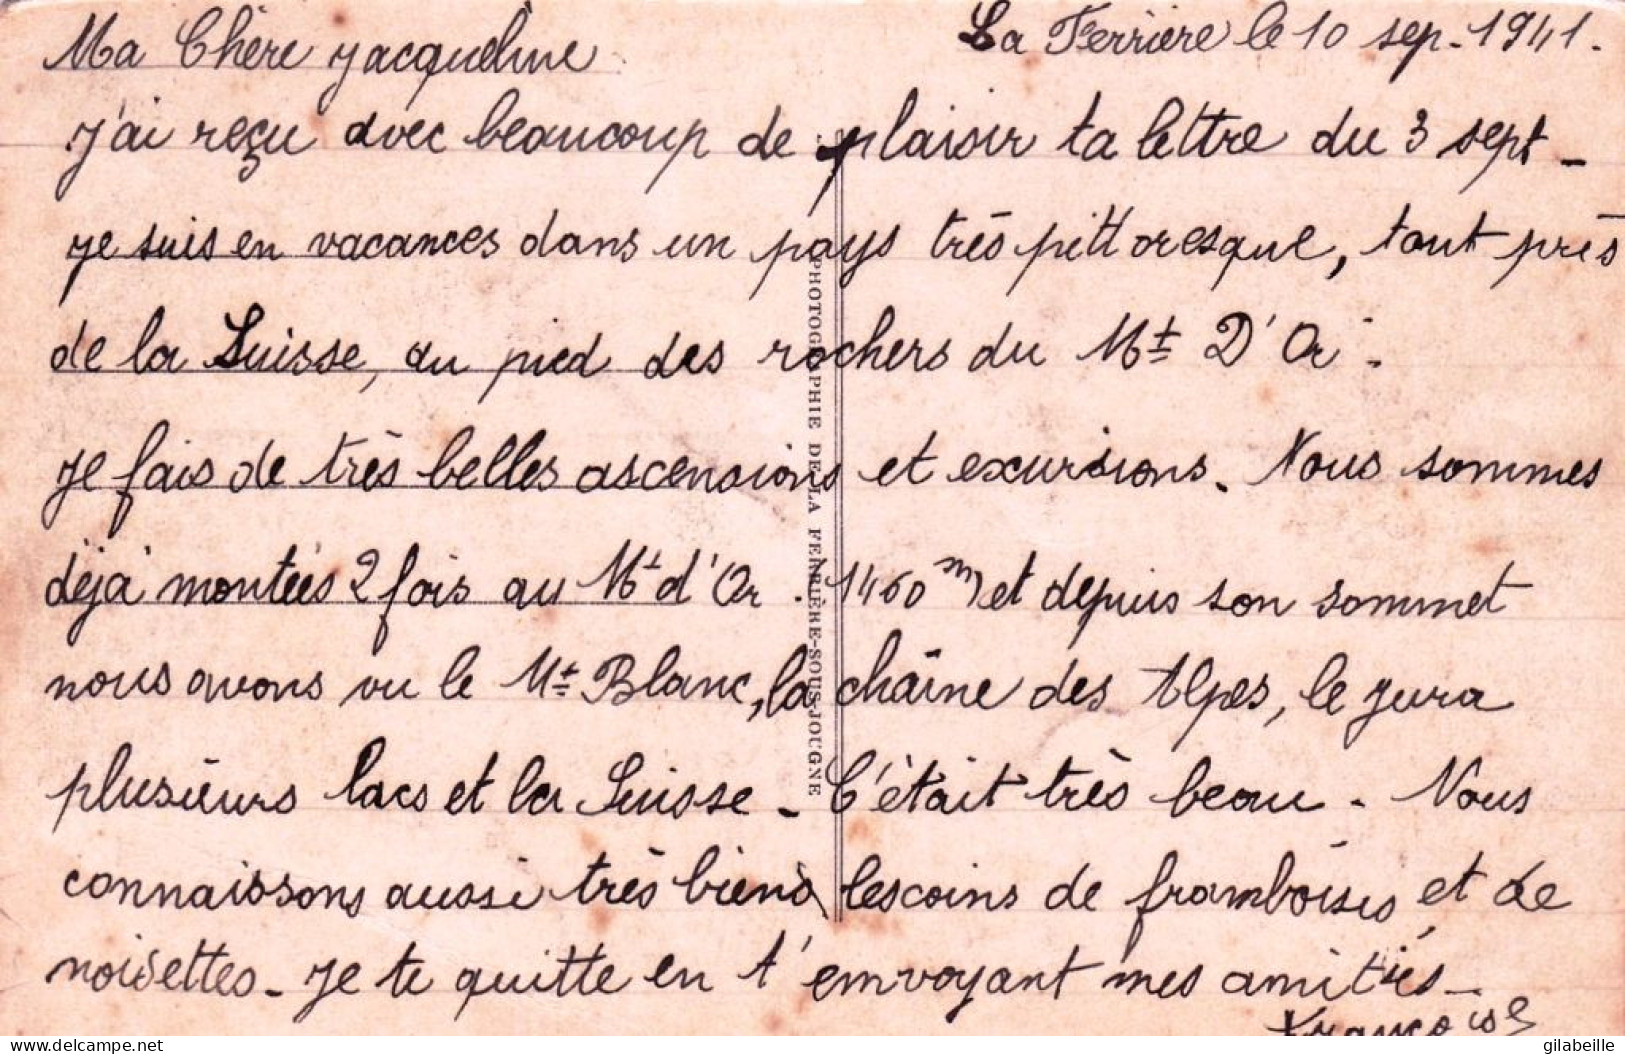 La Ferrière le 10 sep. 1941.
Ma Chère Jacqueline
J'ai reçu avec beaucoup de plaisir ta lettre du 3 sept -
je suis en vacances dans un pays très pittoresque, tout près
de la Suisse, au pied des rochers du Mt D'Or -
Je fais de très belles ascensions et excursions. Nous sommes
déjà montées 2 fois au Mt d'Or . 1460 m) et depuis son sommet
nous avons vu le Mt Blanc, la chaîne des Alpes, le Jura
plusieurs lacs et la Suisse - C'était très beau - Nous
connaissons aussi très biens les coins de framboises, et de
noisettes - Je te quitte en t'envoyant mes amitiés -
Françoise
PHOTOGRAPHIE DE LA FERRIÈRE-SOUS-JOUGNE
www.delcampe.net
gilabeille